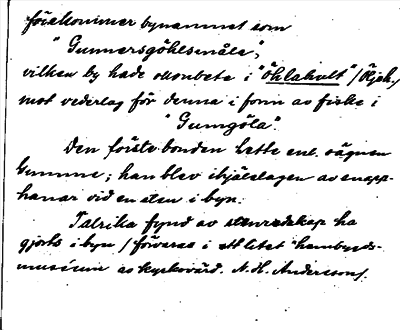 förekommer bynamnet som
"Gunnarsgöhlsmåla",
vilken by hade okonbete i "Öhlahult" / Öljeh./
mot vederlag för denna i form av fiske i
"Gumgöla".
Den förste bonden hette enl. sägnen
Gumme; han blev ihjälslagen av snapp-
hanar vid en sten i byn.
Talrika fynd av stenredskap ha
gjorts i byn / förvaras i ett litet hembygds-
museum av kyrkovärd. N. H. Andersson/.